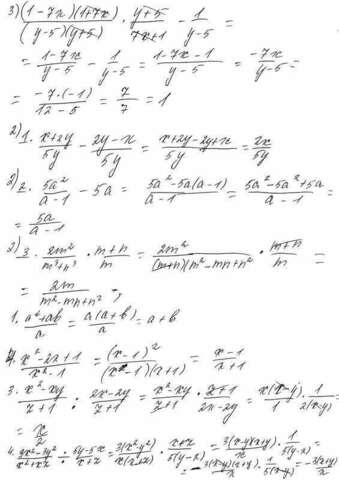 3) (1-7x)(1+7x)/(y-5)(y+5) · y+5/7x+1 - 1/y-5 =
= 1-7x/y-5 - 1/y-5 = 1-7x-1/y-5 = -7x/y-5 =
= -7·(-1)/12-5 = 7/7 = 1
2) 1. x+2y/5y - 2y-x/5y = x+2y-2y+x/5y = 2x/5y
2) 2. 5a²/a-1 - 5a = 5a²-5a(a-1)/a-1 = 5a²-5a²+5a/a-1 =
= 5a/a-1
2) 3. 2m²/m³+n³ · m+n/m = 2m²/(m+n)(m²-mn+n²) · m+n/m =
= 2m/m²-mn+n² ;
1. a²+ab/a = a(a+b)/a = a+b
4. x²-2x+1/x²-1 = (x-1)²/(x-1)(x+1) = x-1/x+1
3. x²-xy/z+1 : 2x-2y/z+1 = x²-xy/z+1 · z+1/2x-2y = x(x-y)/1 · 1/2(x-y) =
= x/2
4. 3x²-3y²/x²+xz : 5y-5x/x+z = 3(x²-y²)/x(x+z) · x+z/5(y-x) = 3(x-y)(x+y)/x · 1/5(y-x) =
= -3(x-y)(x+y)/x · 1/5(x-y) = -3(x+y)/